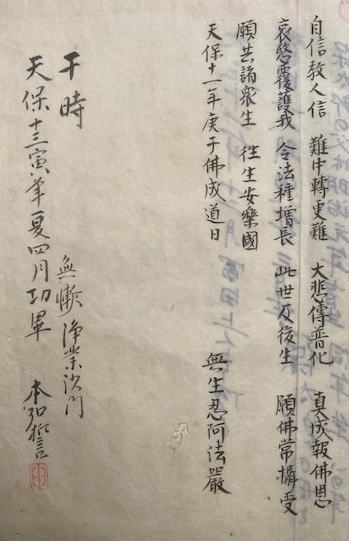 自信教人信 難中轉更難 大悲傳普化 真成報佛恩
哀愍覆護我 令法種增長 此世及後生 願佛常攝受
願共諸衆生 往生安樂國
天保十一年庚子佛成道日 無生忍阿法嚴
于時
天保十三寅年夏四月功畢
無慚淨業沙門 本弘誓